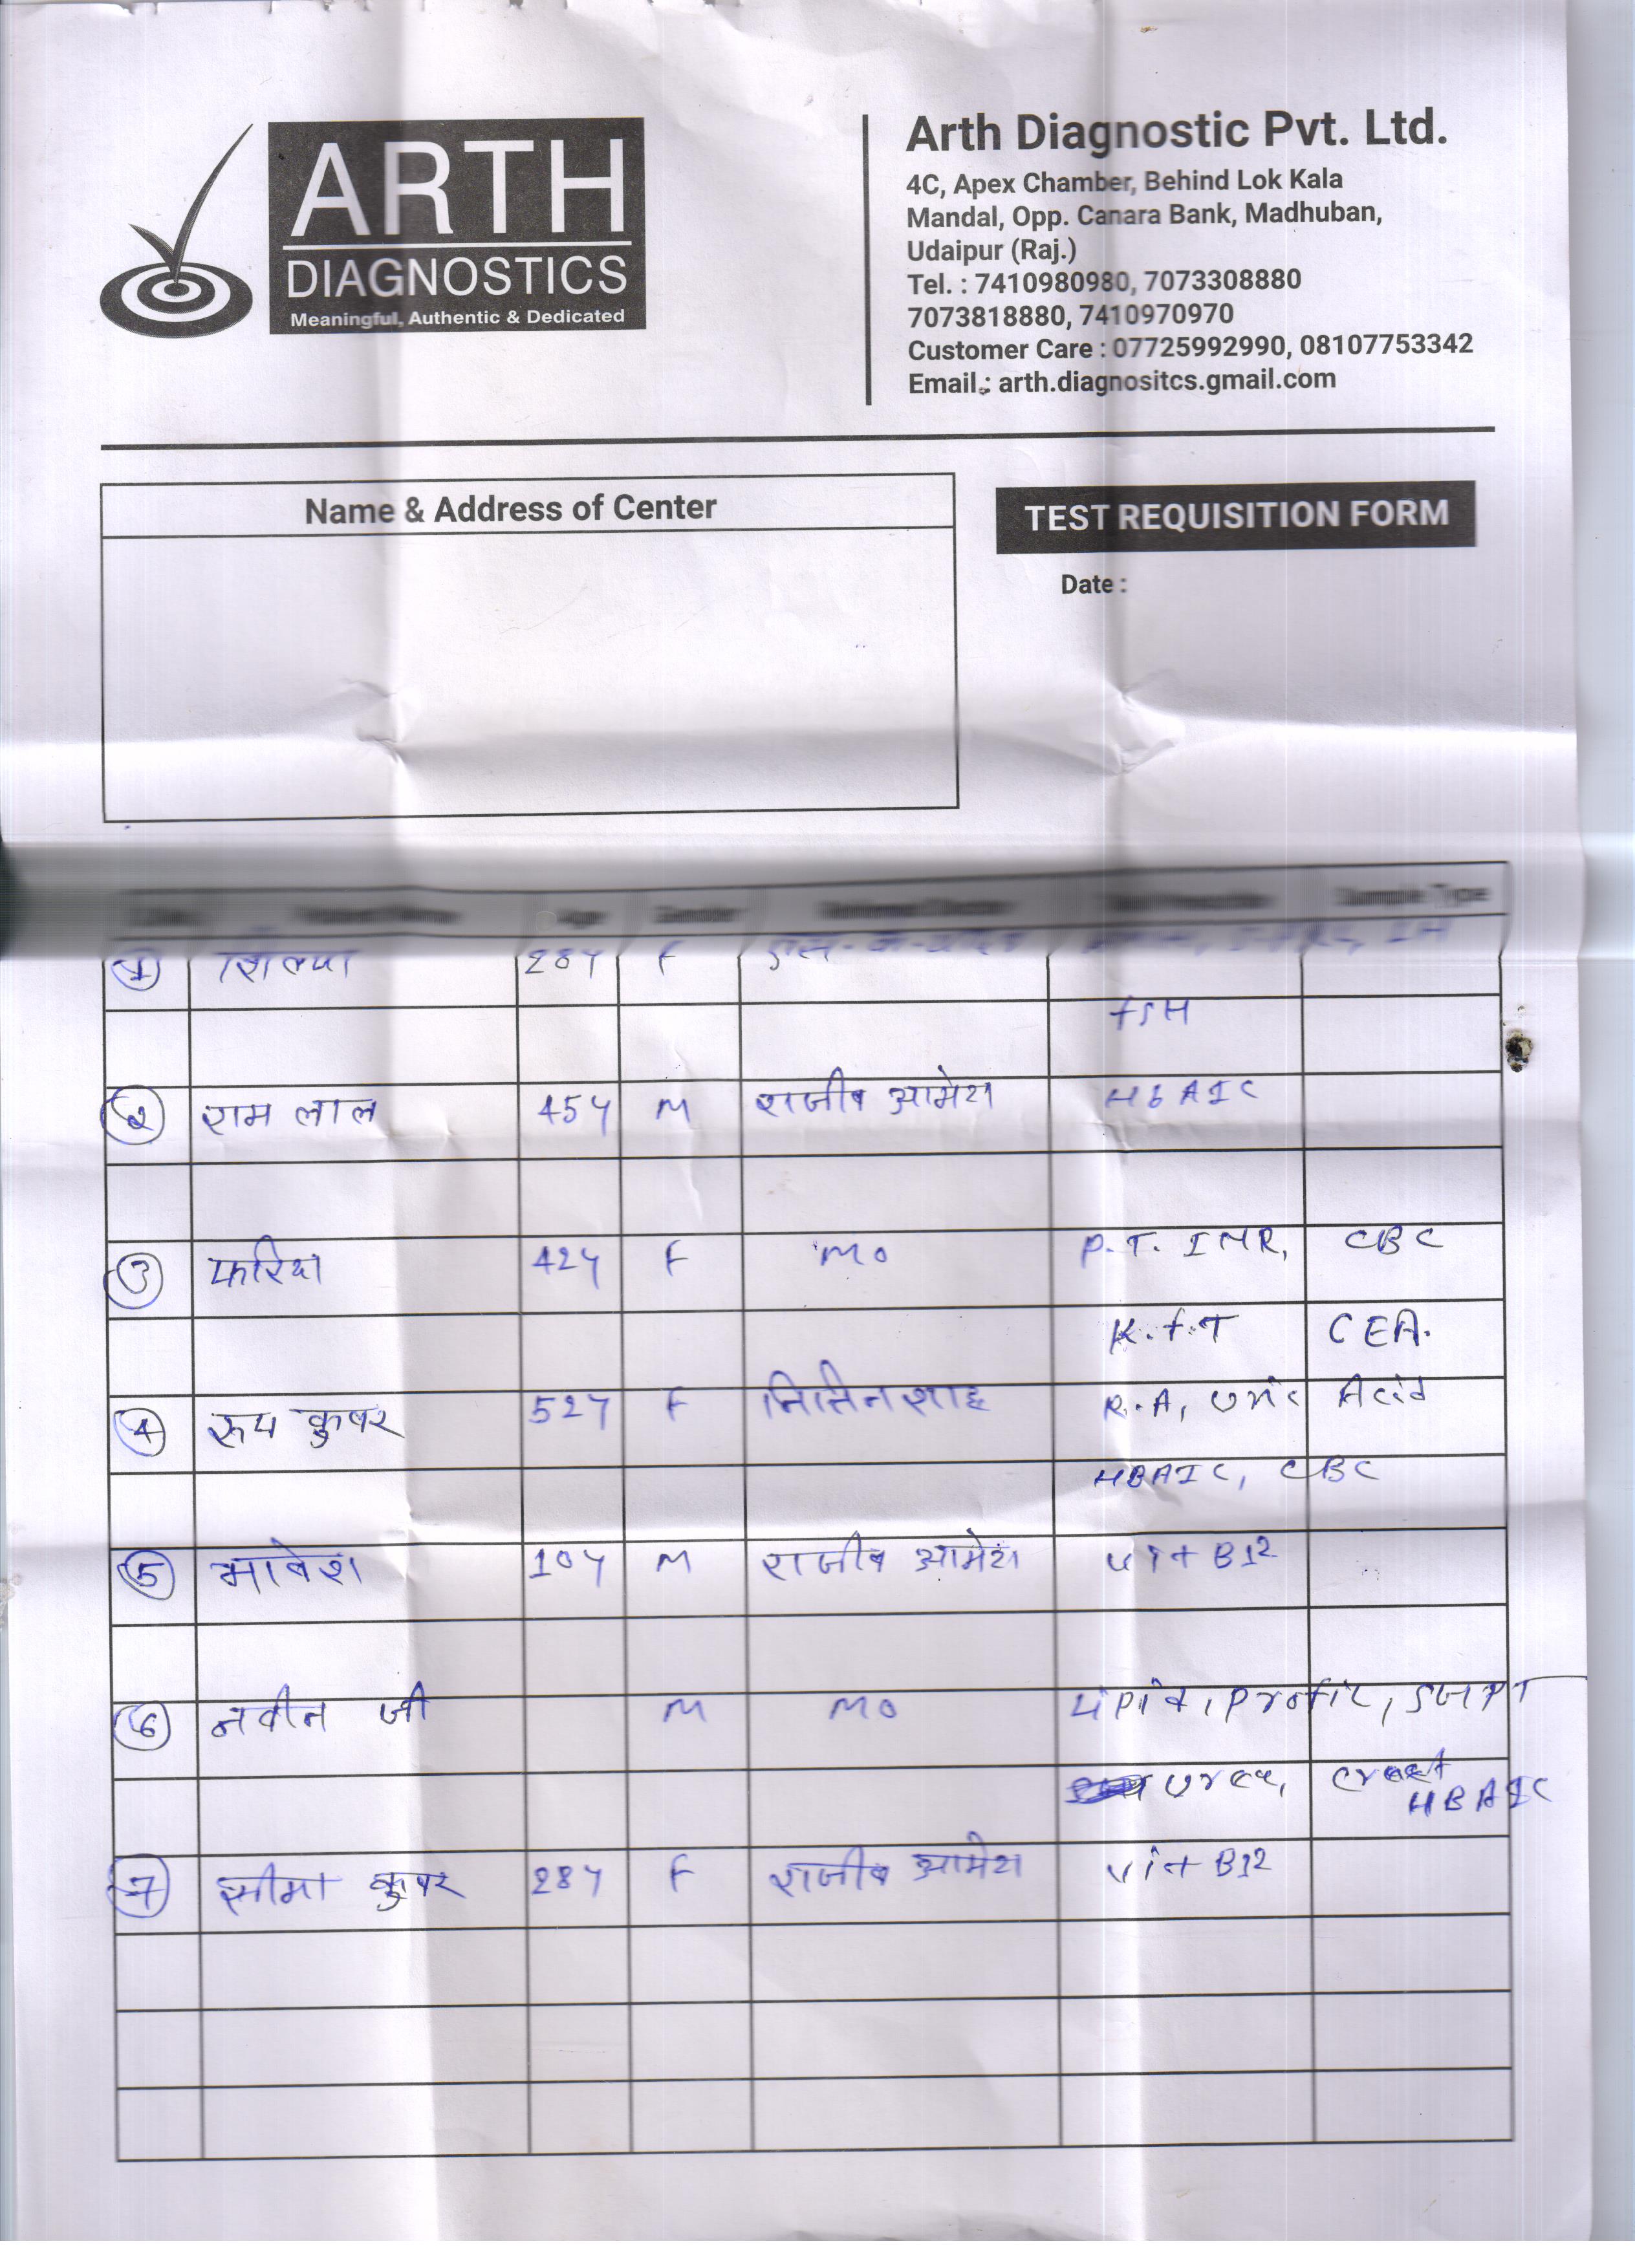 ARTH
DIAGNOSTICS
Meaningful, Authentic & Dedicated
Arth Diagnostic Pvt. Ltd.
4C, Apex Chamber, Behind Lok Kala
Mandal, Opp. Canara Bank, Madhuban,
Udaipur (Raj.)
Tel. : 7410980980, 7073308880
7073818880, 7410970970
Customer Care : 07725992990, 08107753342
Email.: arth.diagnositcs.gmail.com
Name & Address of Center
TEST REQUISITION FORM
Date :
Age Gender Sample Type
1 शिल्पा 28Y F LH
FSH
2 राम लाल 45Y M राजीव आमेटा HbA1C
3 42Y F MO P.T. INR, CBC
K.F.T CEA.
4 रूप कुवर 52Y F नितिन शाह R.A, Uric Acid
HBA1C, CBC
5 भावेश 10Y M राजीव आमेटा Vit B12
6 नवीन जी M MO Lipid, Profil, SGPT
Urea, Creat
HBA1C
7 सीमा कुवर 28Y F राजीव आमेटा Vit B12